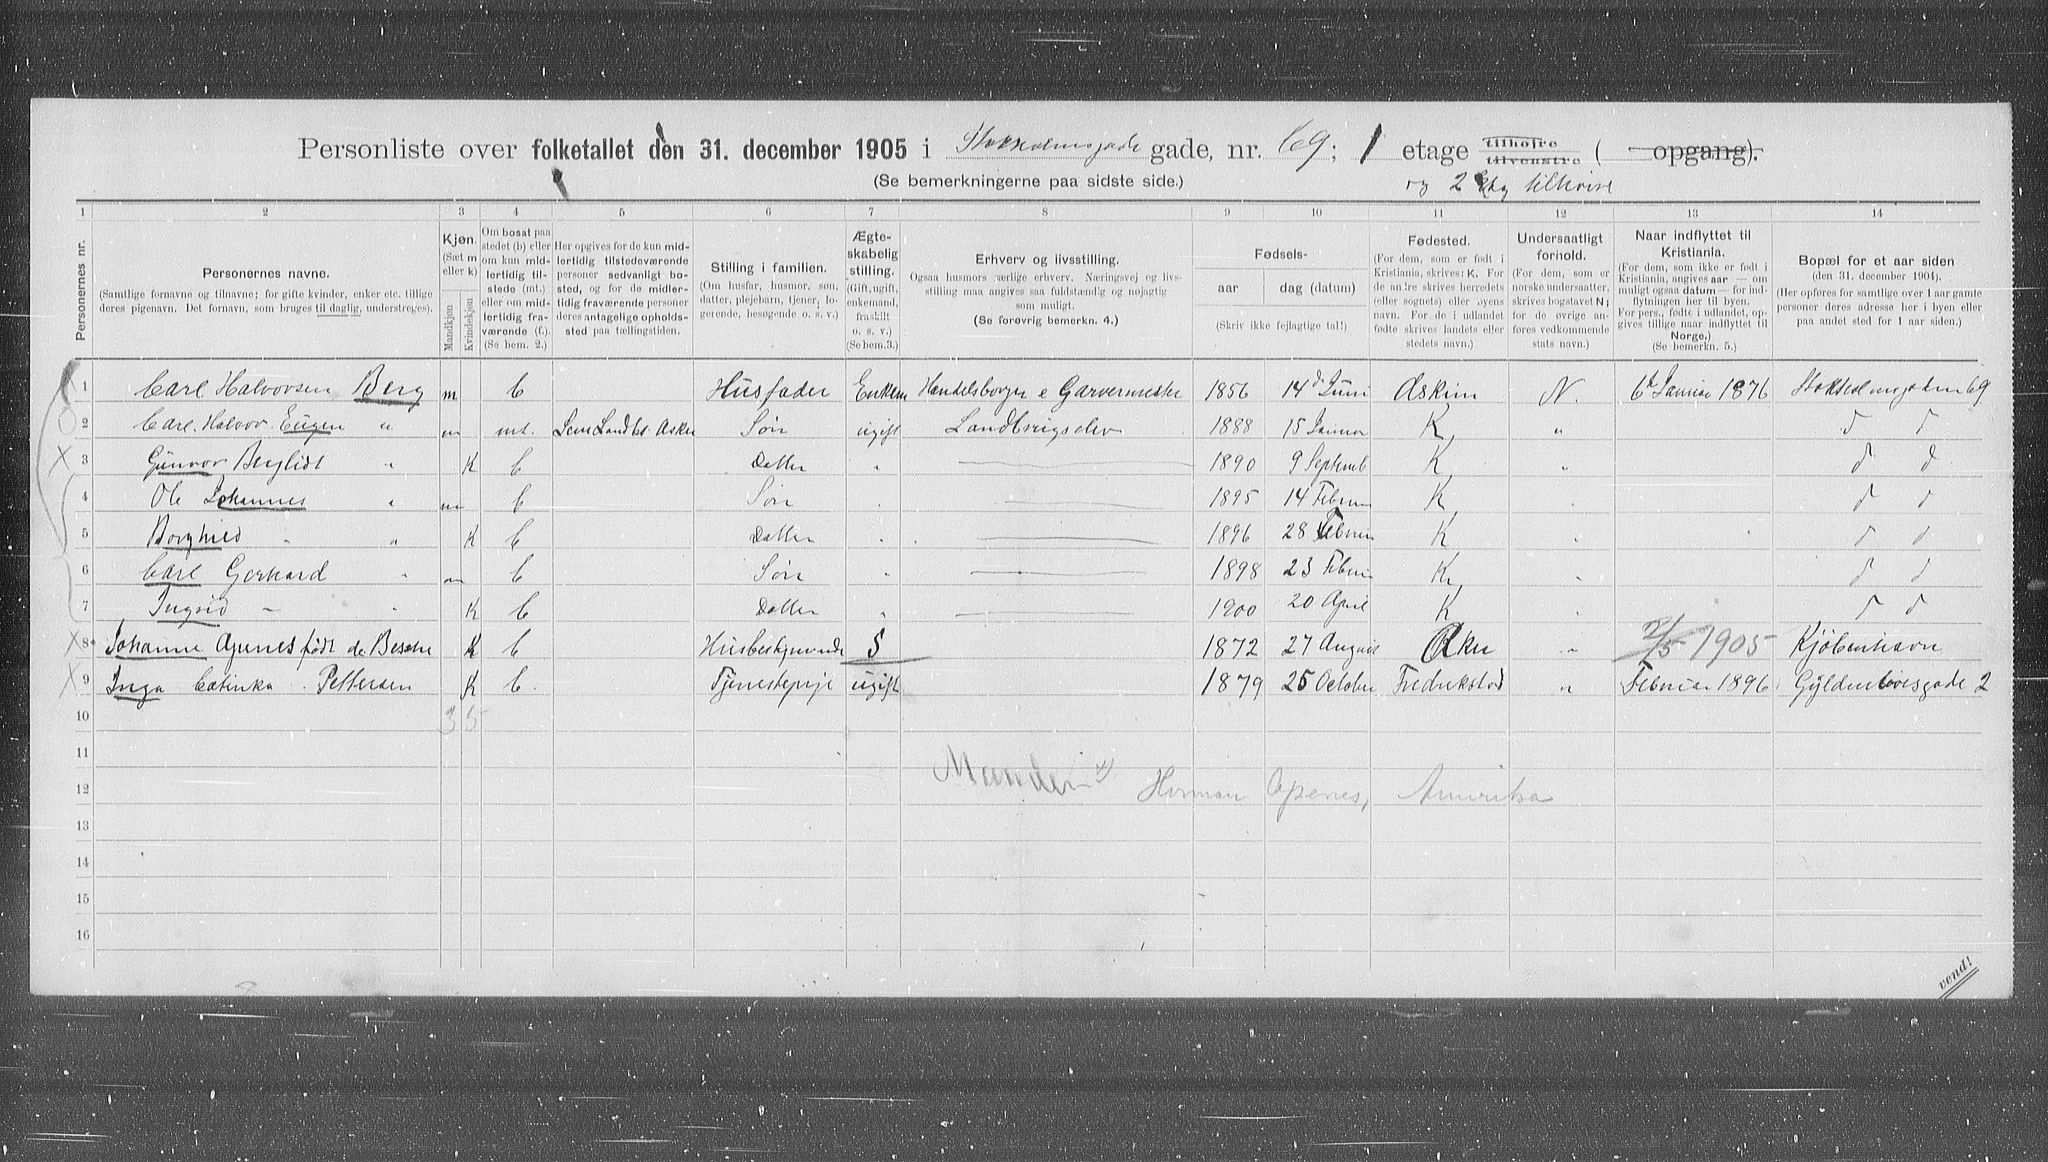 Personliste over folketallet den 31. december 1905 i gade, nr. 69; 1 etage tilhøire tilvenstre ( opgang).
(Se bemerkningerne paa sidste side.)
og 2 tilhøire
1 2 3 4 5 6 7 8 9 10 11 12 13 14
Personernes nr.
Personernes navne.
(Samtlige fornavne og tilnavne; for gifte kvinder, enker etc. tillige deres pigenavn. Det fornavn, som bruges til daglig, understreges).
Kjøn.
(Sæt m eller k)
Mandkjøn
Kvindekjøn
Om bosat paa stedet (b) eller om kun midlertidig tilstede (mt.) eller om midlertidig fraværende (f.).
(Se bem. 2.)
Her opgives for de kun midlertidig tilstedeværende personer sedvanligt bosted, og for de midlertidig fraværende personer deres antagelige opholdssted paa tællingstiden.
Stilling i familien.
(Om husfar, husmor, søn, datter, plejebarn, tjener, logerende, besøgende o. s. v.)
Ægteskabelig stilling.
(Gift, ugift, enkemand, fraskilt o. s. v.)
(Se bem. 3.)
Erhverv og livsstilling.
Ogsaa husmors særlige erhverv. Næringsvej og livsstilling maa angives saa fuldstændig og nøjagtig som muligt.
(Se forøvrig bemerkn. 4.)
Fødsels-
aar
dag (datum)
(Skriv ikke fejlagtige tal!)
Fødested.
(For dem, som er født i Kristiania, skrives: K. For de andre skrives herredets (eller sognets) eller byens navn. For de i udlandet fødte skrives landets eller stedets navn.)
Undersaatligt forhold.
(For dem, som er norske undersaatter, skrives bogstavet N; for de øvrige anføres vedkommende stats navn.)
Naar indflyttet til Kristiania.
(For dem, som ikke er født i Kristiania, angives aar — om muligt ogsaa datum — for indflytningen her til byen. For pers., fødte i udlandet, opgives tillige naar indflyttet til Norge.)
(Se bemerkn. 5.)
Bopæl for et aar siden
(den 31. december 1904).
(Her opføres for samtlige over 1 aar gamle personer deres adresse her i byen eller paa andet sted for 1 aar siden.)
1 Carl Halvorsen Berg m b Husfader Enkem Handelsborger & Garvermester 1856 14d Juni Askim N. 6te Januar 1876 69
2 Carl Halvor Eugen " m mt. Asker Søn ugift Landbrugselev 1888 15 Januar K "
3 Gunvor Bergliot " K b Datter " 1890 9 Septemb K "
4 Ole Johannes " m b Søn " 1895 14 Februar K "
5 Borghild " K b Datter " 1896 28 Februar K "
6 Carl Gerhard " m b Søn " 1898 23 Februar K "
7 Ingrid " K b Datter " 1900 20 April K "
8 Johanne Apenes født de Besche K b Husbestyrerinde S 1872 27 August " 2/5 1905 Kjøbenhavn
9 Inga Catinka Pettersen K b. Tjenestepige ugift 1879 25 October Fredrikstad " Februar 1896 Gyldenløvesgade 2
10 3 5
11
12 Manden Herman Apenes, Amerika
13
14
15
16
vend!